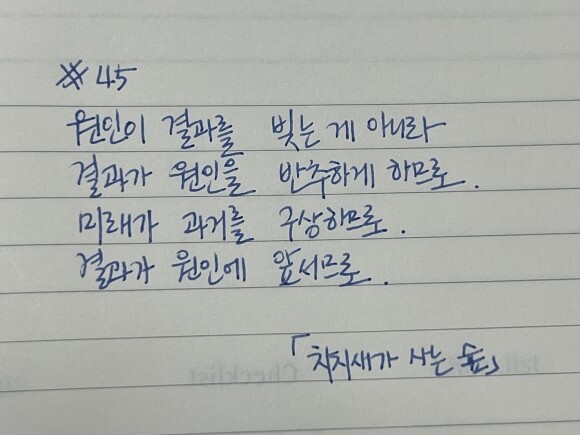 ※ 45
원인이 결과를 빚는 게 아니라
결과가 원인을 반추하게 하므로.
미래가 과거를 구상하므로.
결과가 원인에 앞서므로.
「치치새가 사는 숲」
Checklist